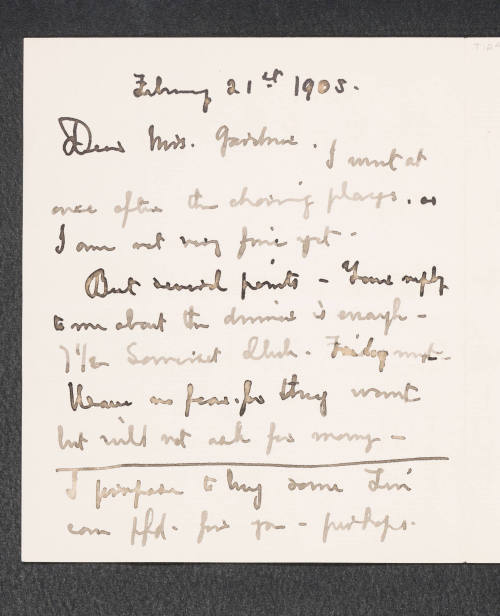 February 21st 1905.
Dear Mrs. Gardner. I went at
once after the charming plays. as
I am not very fine yet -
But several points - Your reply
to me about the dinner is enough -
7 1/2 Somerset Club. Friday next -
Have no fear. for they want
but will not ask for money -
I propose to buy some
com pfd. for you - perhaps.